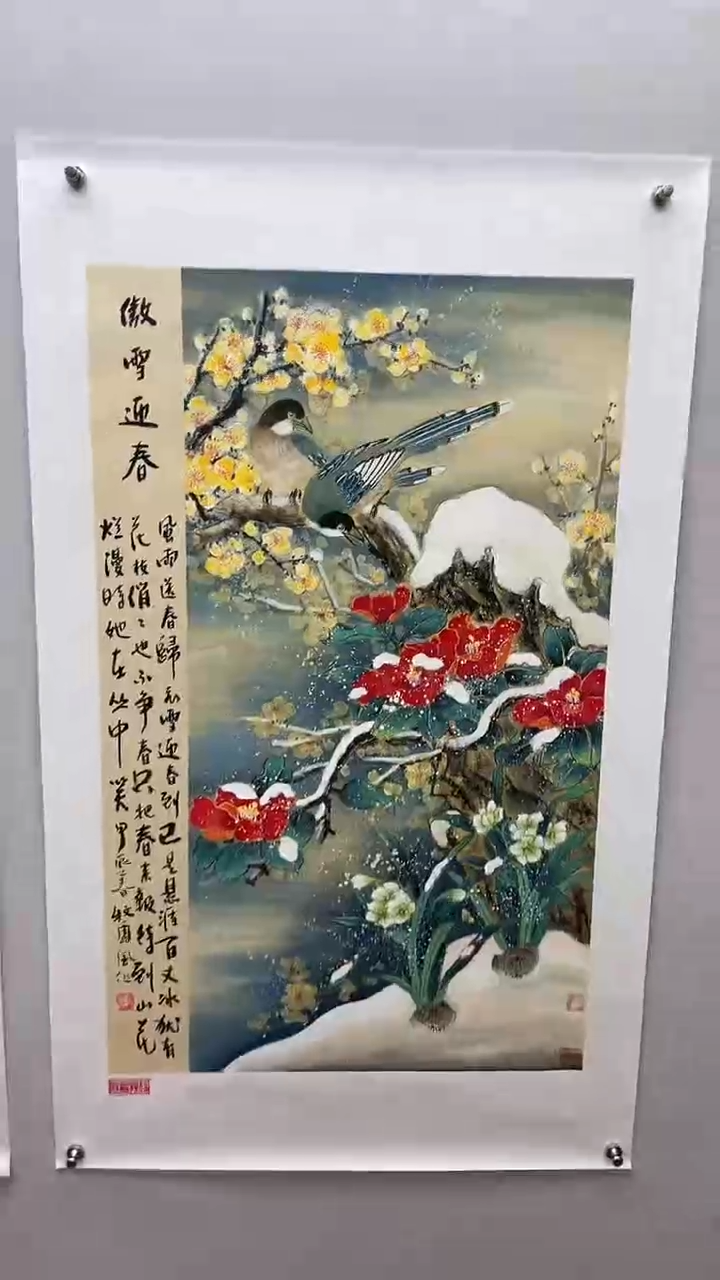 傲雪迎春
風雨送春歸飛雪迎春到已是懸崖百丈冰犹有
花枝俏〻也不争春只把春来報待到山花
烂漫時她在丛中笑甲辰春